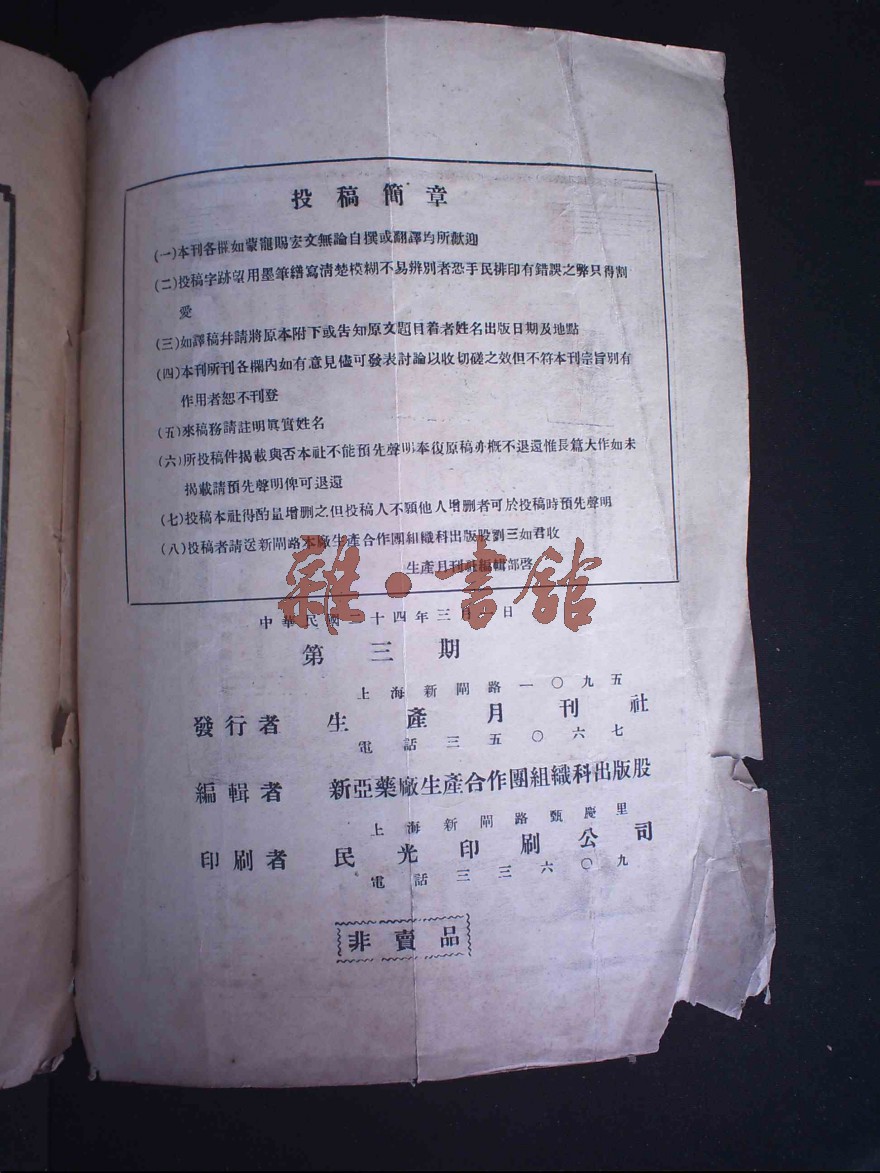 投稿簡章
(一)本刊各欄如蒙寵賜宏文無論自撰或翻譯均所歡迎
(二)投稿字跡望用墨筆繕寫清楚模糊不易辨別者恐手民排印有錯誤之弊只得割
愛
(三)如譯稿幷請將原本附下或告知原文題目着者姓名出版日期及地點
(四)本刊所刊各欄內如有意見儘可發表討論以收切磋之效但不符本刊宗旨別有
作用者恕不刊登
(五)來稿務請註明眞實姓名
(六)所投稿件揭載與否本社不能預先聲明奉復原稿亦概不退還惟長篇大作如未
揭載請預先聲明俾可退還
(七)投稿本社得酌量增删之但投稿人不願他人增删者可於投稿時預先聲明
(八)投稿者請送新閘路本廠生產合作團組織科出版股劉三如君收
生產月刊社編輯部啓
雜·書館
中華民國二十四年三月 日
第三期
上海新閘路一〇九五
發行者 生產月刊社
電話三五〇六七
編輯者 新亞藥廠生產合作團組織科出版股
上海新閘路甄慶里
印刷者 民光印刷公司
電話三三六〇九
非賣品